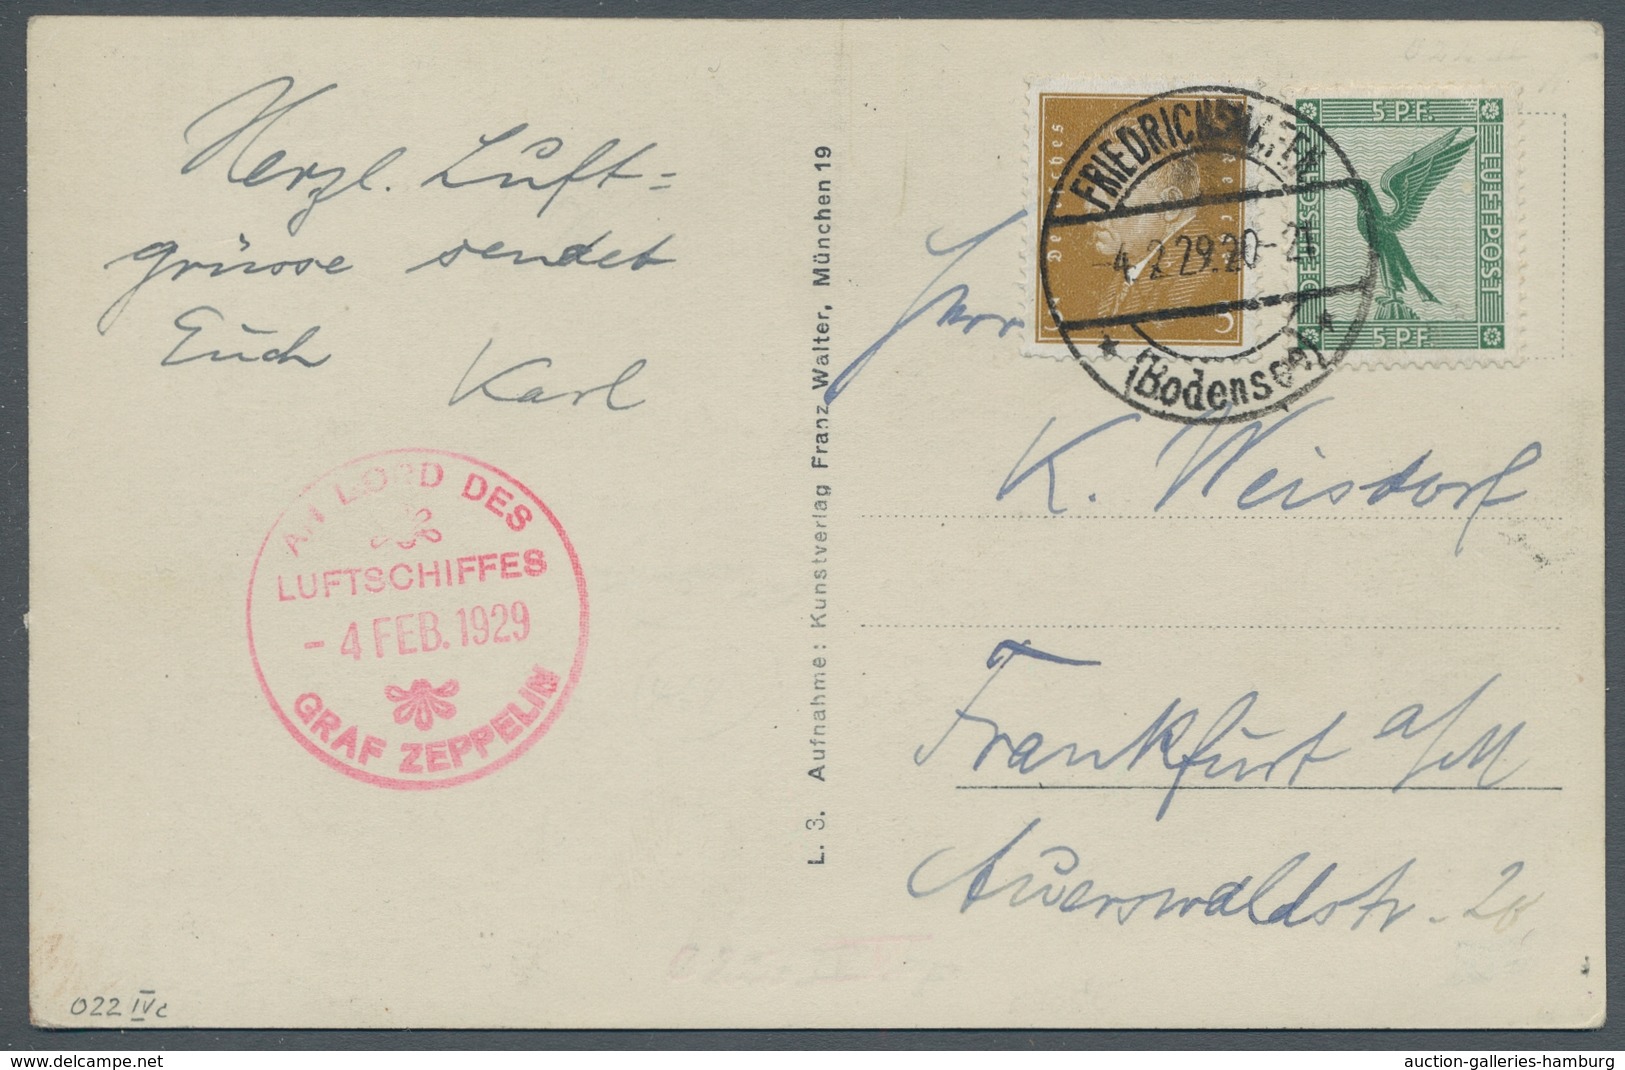 Herzl. Luft=
grüsse sendet
Euch
Karl
AN BORD DES
LUFTSCHIFFES
- 4 FEB. 1929
GRAF ZEPPELIN
022 IVc
L. 3. Aufnahme: Kunstverlag Franz Walter, München 19
Deutsches Reich
3
5 PF.
DEUTSCHE
LUFTPOST
5 PF.
FRIEDRICHSHAFEN
-4.2.29.20-21
* (Bodensee) *
Herrn
K. Weisdorf
Frankfurt a/M
Auerswaldstr.
delcampe.net
auction-galleries-hamburg